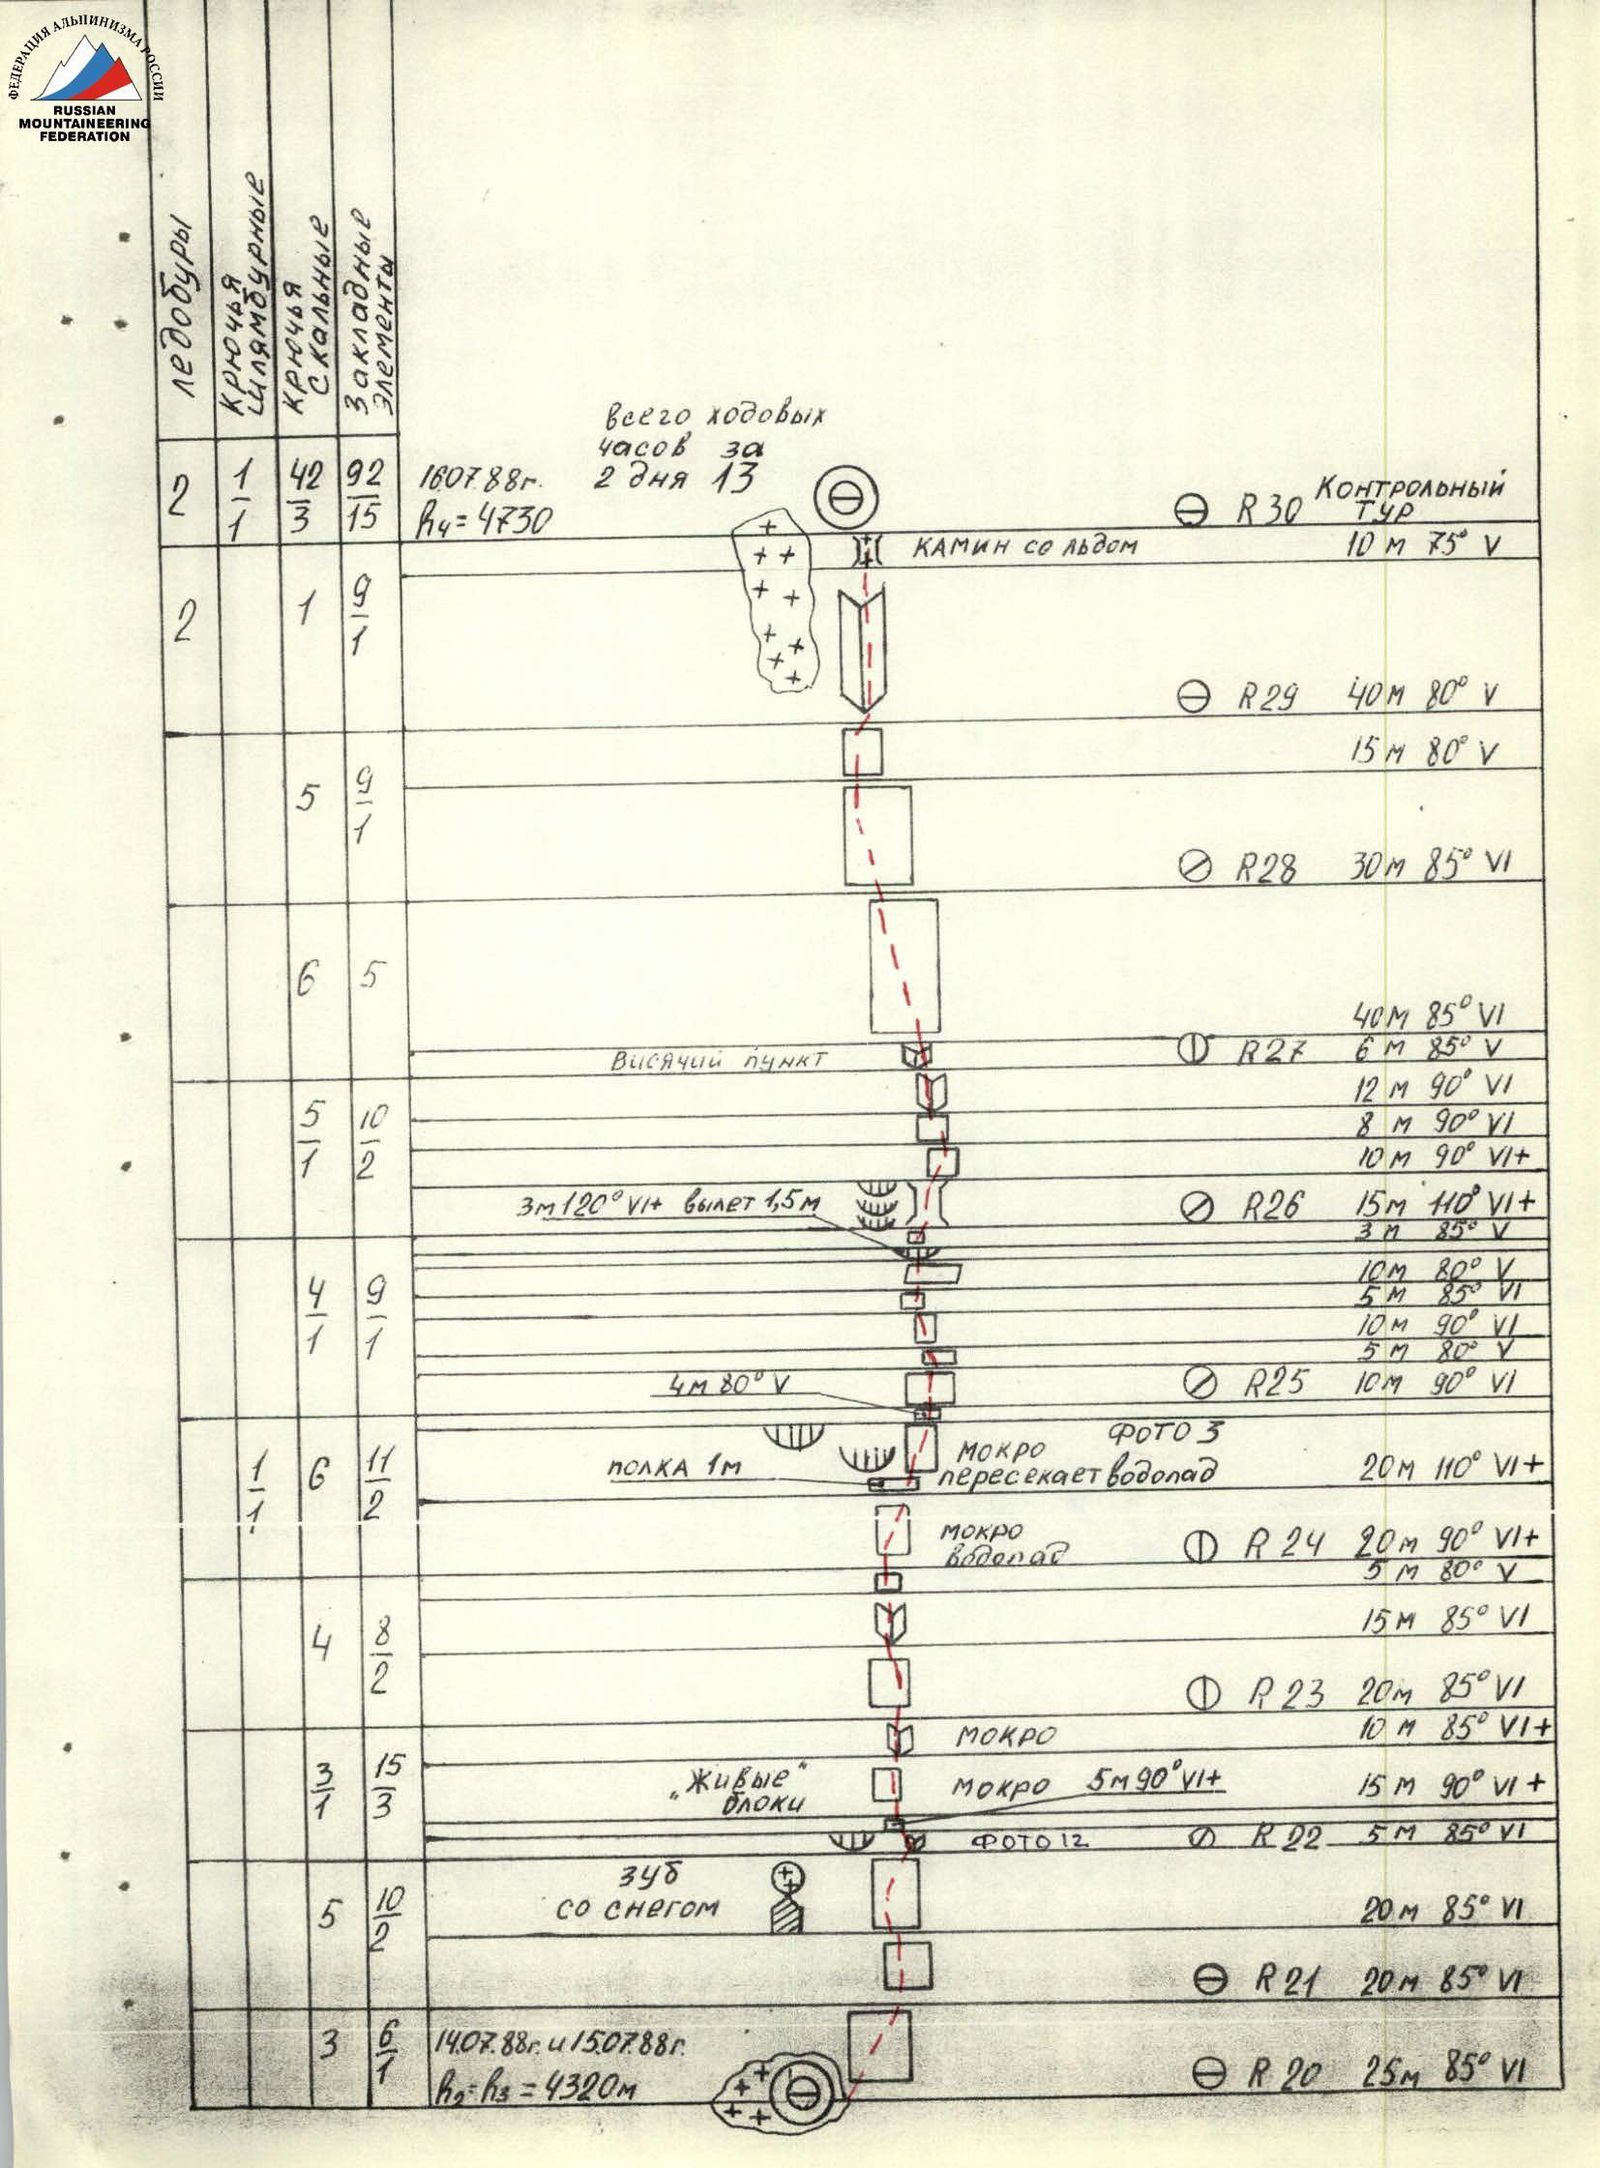 ФЕДЕРАЦИЯ АЛЬПИНИЗМА РОССИИ
RUSSIAN
MOUNTAINEERING
FEDERATION
Ледобуры
Крючья шлямбурные
Крючья скальные
Закладные элементы
всего ходовых
часов за
2 дня 13
2 1/1 42/3 92/15
16.07.88г.
h4=4730
R30 Контрольный тур
камин со льдом 10 м 75° V
2 1 9/1
R29 40м 80° V
15м 80° V
5 9/1
R28 30м 85° VI
6 5
40м 85° VI
Висячий пункт R27 6 м 85° V
12 м 90° VI
5/1 10/2
8 м 90° VI
10м 90° VI+
3м 120° VI+ вылет 1,5м R26 15м 110° VI+
3 м 85° V
10м 80° V
4/1 9/1
5 м 85° VI
10м 90° VI
5 м 80° V
4м 80° V R25 10м 90° VI
фото 3
1/1 6 11/2
полка 1м
мокро
пересекает водопад 20м 110° VI+
мокро
водопад
R24 20м 90° VI+
5 м 80° V
4 8/2
15м 85° VI
R23 20м 85° VI
мокро 10 м 85° VI+
3/1 15/3
„Живые“
блоки
мокро 5м 90° VI+ 15м 90° VI+
фото 12 R22 5 м 85° VI
зуб
со снегом
5 10/2
20м 85° VI
R21 20м 85° VI
3 6/1
14.07.88г. и 15.07.88г.
h2=h3=4320м
R20 25м 85° VI